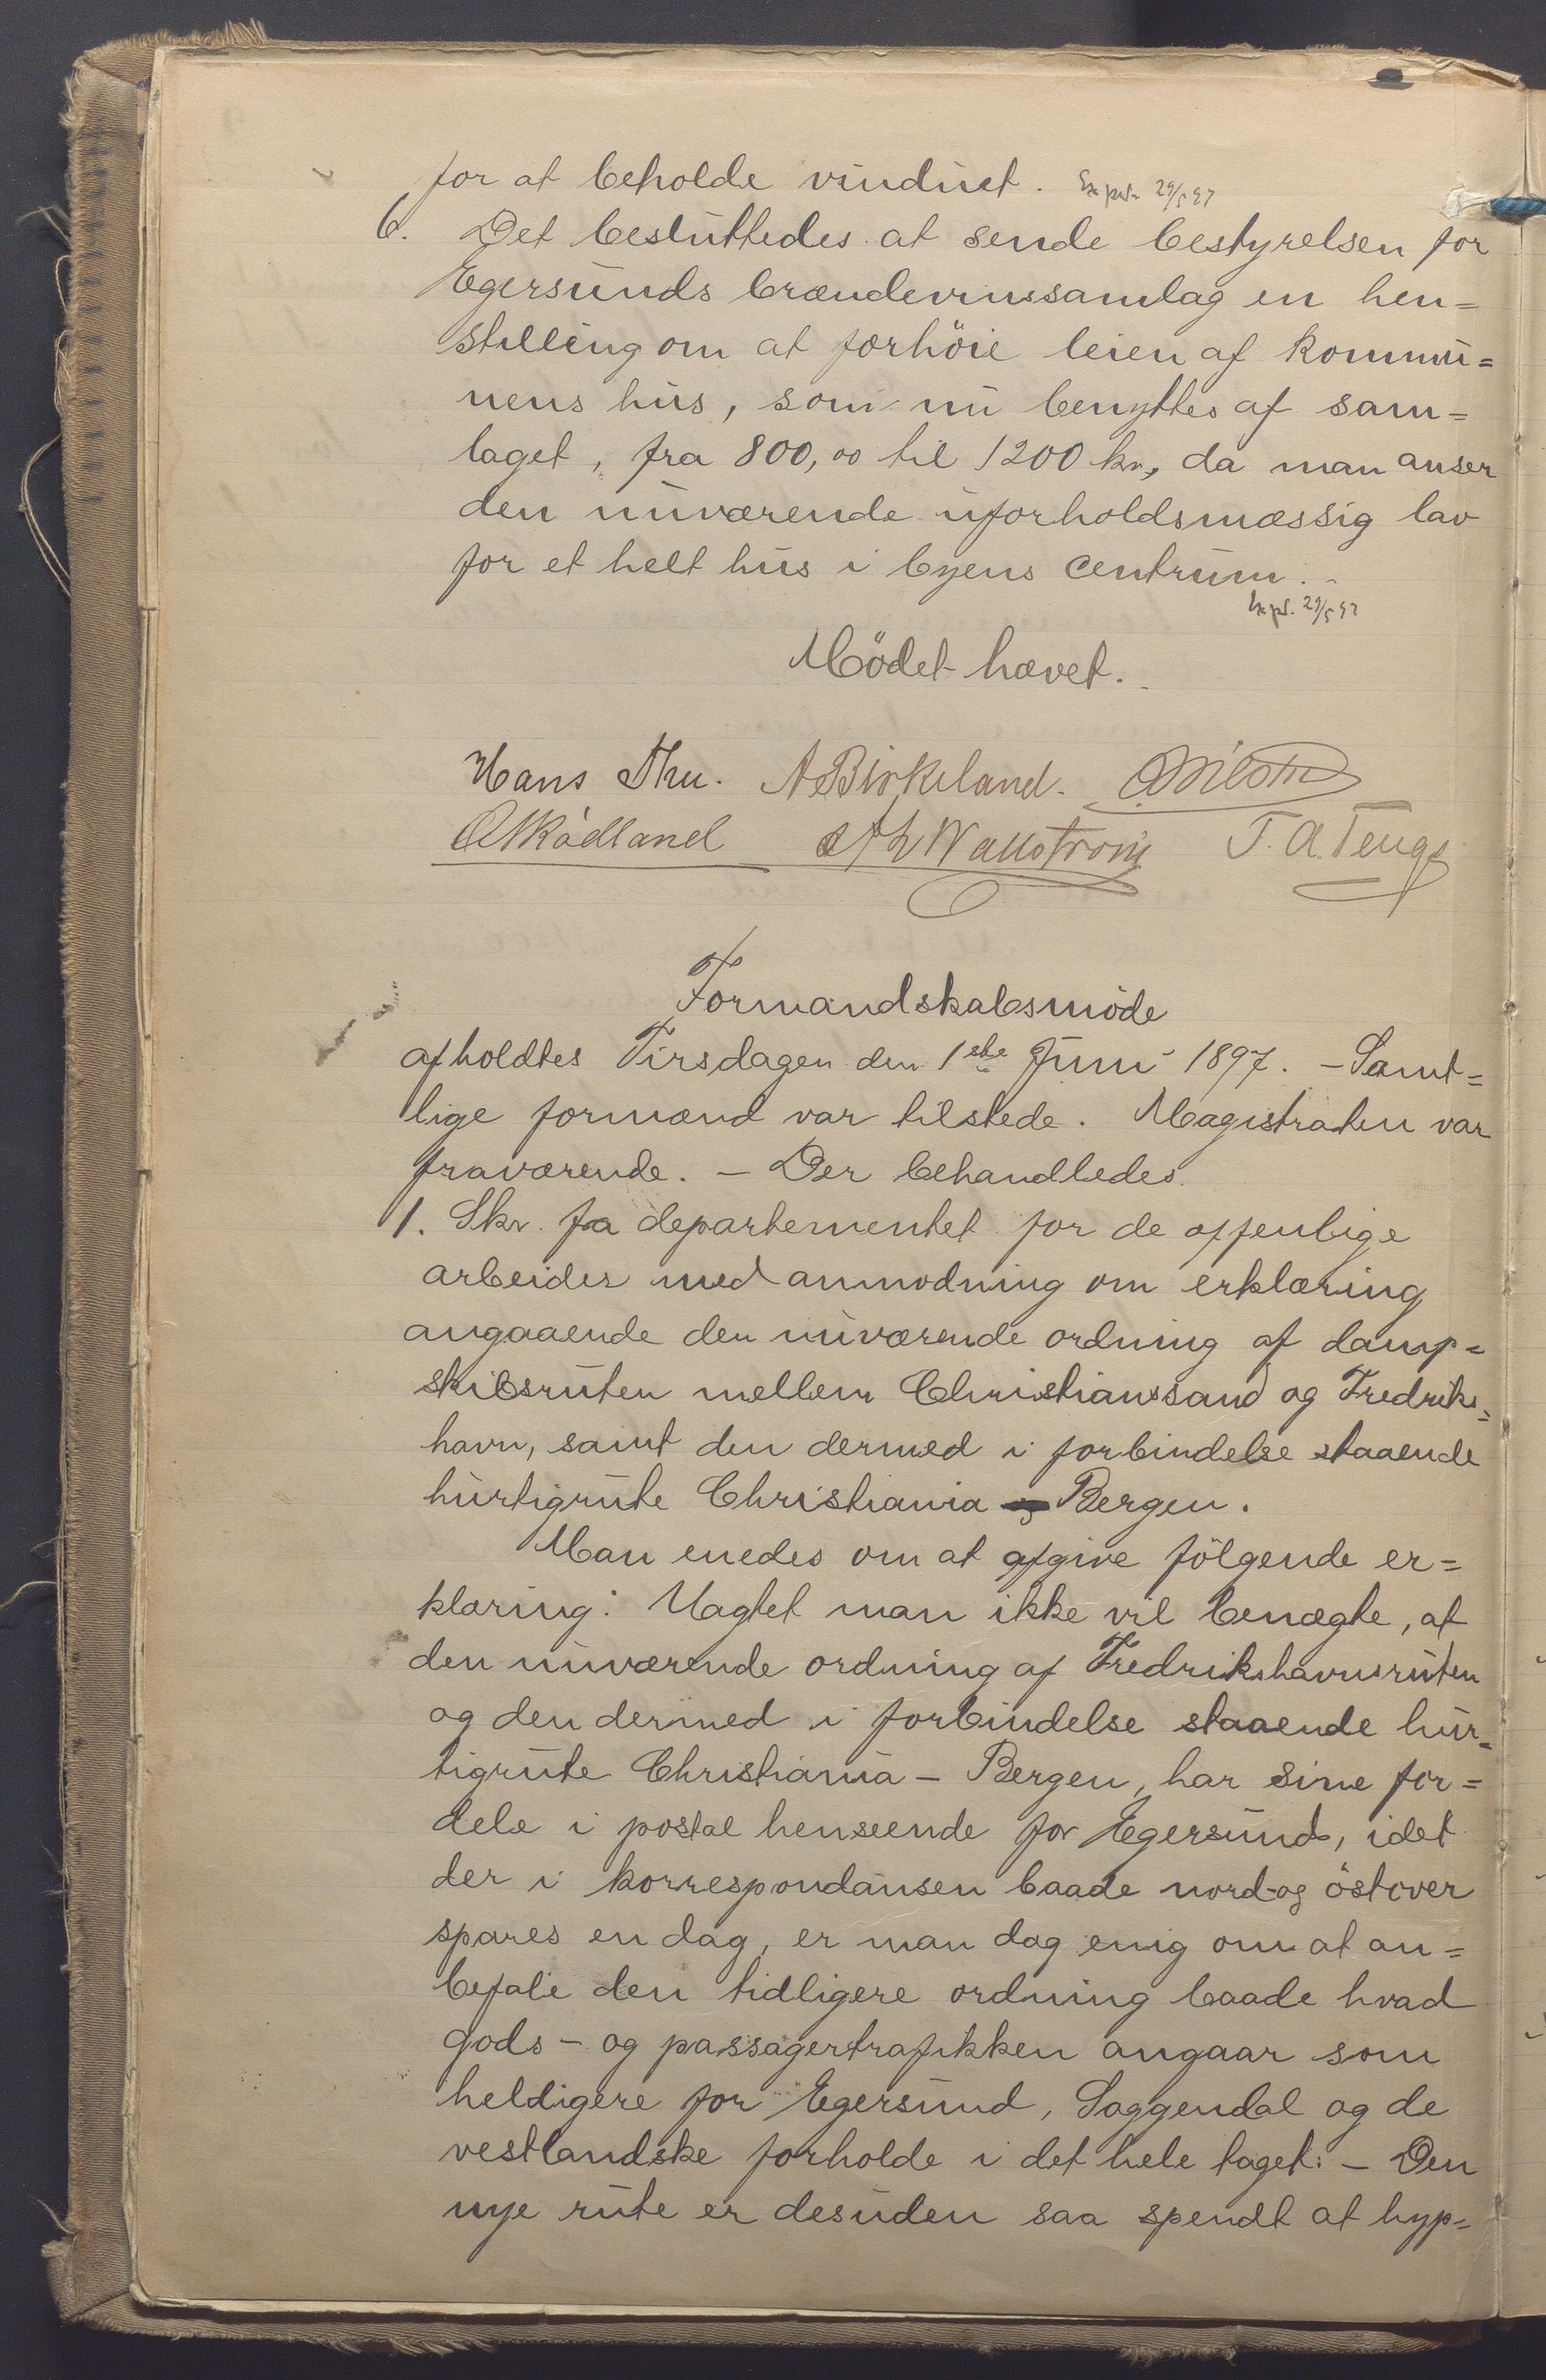 for at beholde vinduet. Exped. 29/5 97
6. Det besluttedes at sende bestyrelsen for
Egersunds brændevinssamlag en hen=
stilling om at forhöie leien af kommu=
nens hus, som nu benyttes af sam=
laget, fra 800,00 til 1200 kr, da man anser
den nuværende uforholdsmæssig lav
for et helt hus i byens centrum.
Exped. 29/5 97
Mödet hævet.
Hans Thu. A Birkeland.
O M Rådland Wallstrøm T. A. Tengs
Formandskabsmöde
afholdtes Tirsdagen den 1ste Juni 1897. - Samt=
lige formænd var tilstede. Magistraten var
fraværende. - Der behandledes.
1. Skr. fra departementet for de offenlige
arbeider med anmodning om erklæring
angaaende den nuværende ordning af damp=
skibsruten mellem Christianssand og Fredriks=
havn, samt den dermed i forbindelse staaende
hurtigrute Christiania - Bergen.
Man enedes om at afgive fölgende er=
klæring: Uagtet man ikke vil benægte, at
den nuværende ordning af Fredrikshavnsruten
og den dermed i forbindelse staaende hur=
tigrute Christiania - Bergen, har sine for=
dele i postal henseende for Egersund, idet
der i korrespondansen baade nord-og östover
spares en dag, er man dog enig om at an=
befale den tidligere ordning baade hvad
gods- og passagertrafikken angaar som
heldigere for Egersund, Soggendal og de
vestlandske forholde i det hele taget. - Den
nye rute er desuden saa spendt at hyp=